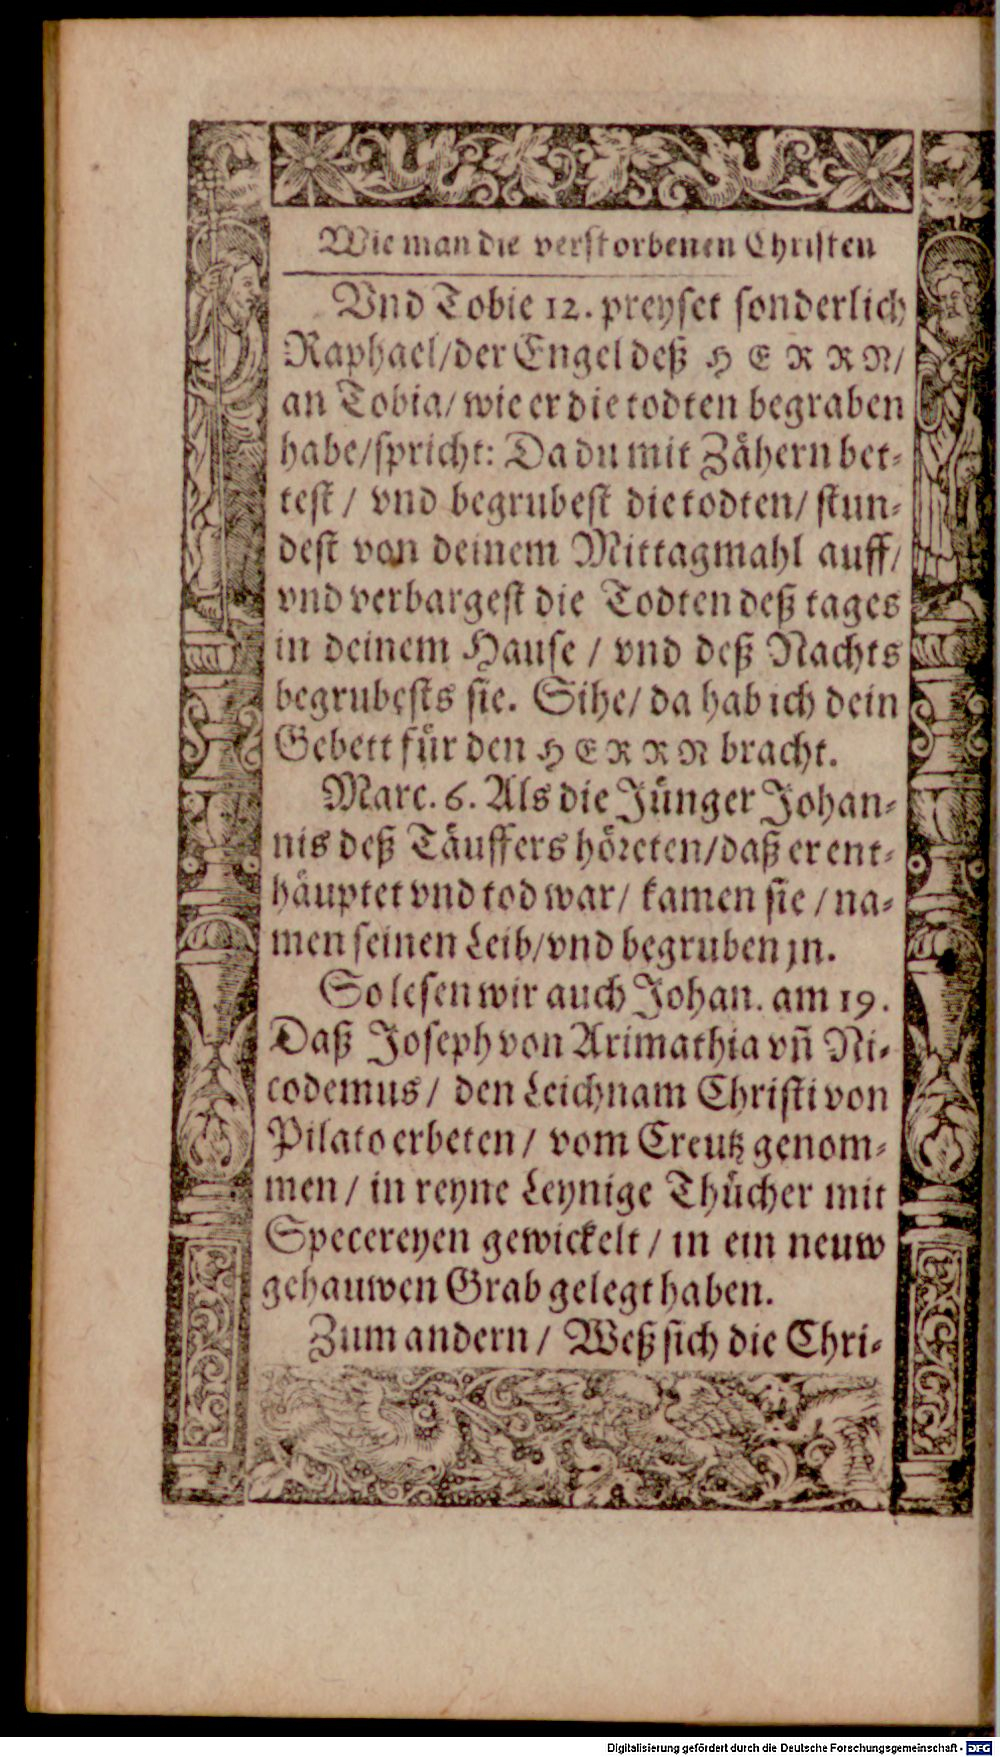 Wie man die verstorbenen Christen
Vnd Tobie 12. preyset sonderlich
Raphael/der Engel deß HERRN/
an Tobia/ wie er die todten begraben
habe/spricht: Da du mit Zähern bet-
test / vnd begrubest die todten/ stun-
dest von deinem Mittagmahl auff/
vnd verbargest die Todten deß tages
in deinem Hause / vnd deß Nachts
begrubests sie. Sihe/ da hab ich dein
Gebett für den HERRN bracht.
Marc. 6. Als die Jünger Johan-
nis deß Täuffers höreten/daß er ent-
häuptet vnd tod war/ kamen sie / na-
men seinen Leib/vnd begruben jn.
So lesen wir auch Johan. am 19.
Daß Joseph von Arimathia vñ Ni-
codemus/ den Leichnam Christi von
Pilato erbeten/ vom Creutz genom-
men/ in reyne Leynige Thücher mit
Specereyen gewickelt / in ein neuw
gehauwen Grab gelegt haben.
Zum andern / Weß sich die Chri-
Digitalisierung gefördert durch die Deutsche Forschungsgemeinschaft - DFG